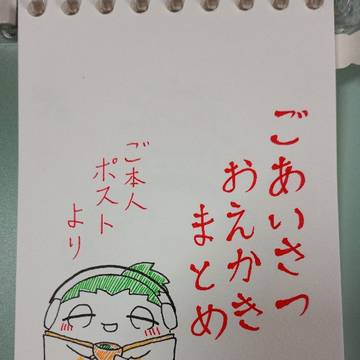 ごあいさつ
おえかき
まとめ
ご本人
ポスト
より